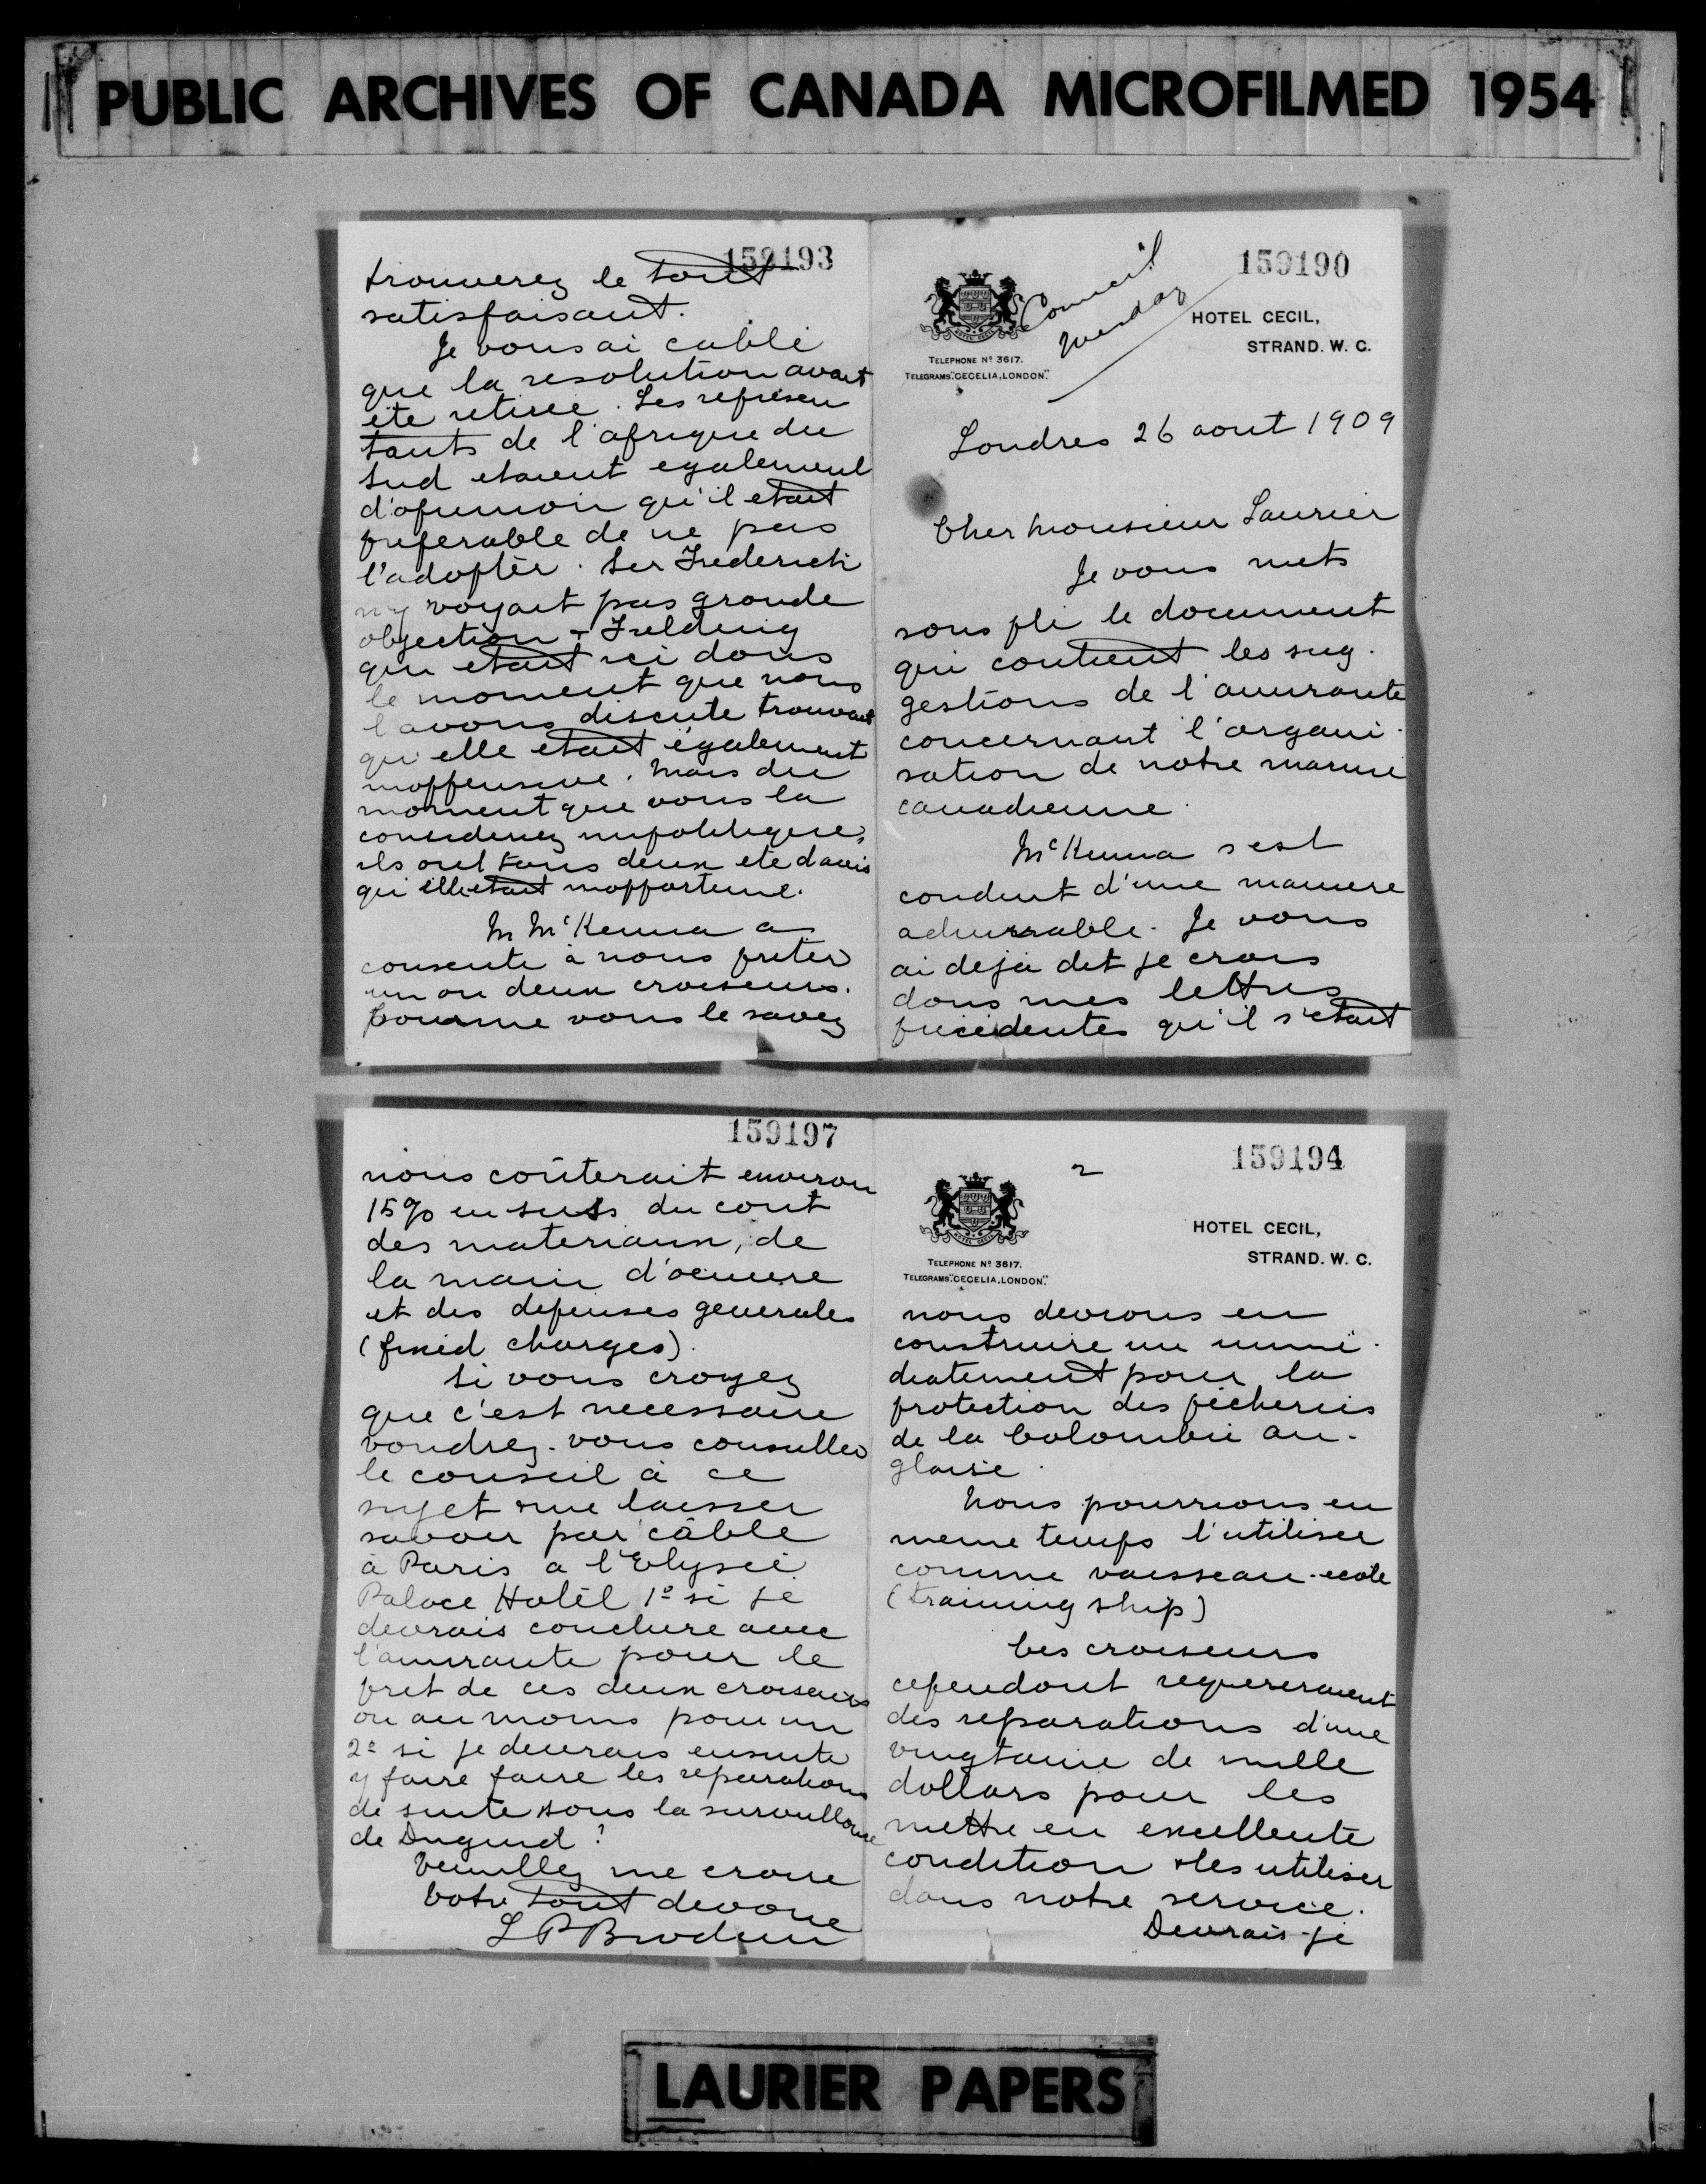 PUBLIC ARCHIVES OF CANADA MICROFILMED 1954
159193
trouverez le tout
satisfaisant.
Je vous ai cablé
que la resolution avait
ete retirée. Les represen
tants de l'afrique du
Sud etaient egalement
d'opinion qu'il etait
preferable de ne pas
l'adopter. Sir Frederick
n'y voyait pas grande
objection & Fielding
qui etait ici dans
le moment que nous
l'avons discute trouvait
qu'elle etait également
inoffensive. Mais du
moment que vous la
considerez impolitique,
ils ont tous deux ete d'avis
qu'elle etait inopportune.
M McKenna a
consente à nous preter
un ou deux croiseurs.
Comme vous le savez
159190
Council
Tuesday
HOTEL CECIL,
STRAND. W. C.
TELEPHONE Nº 3617.
TELEGRAMS "CECELIA, LONDON."
Londres 26 aout 1909
Cher Monsieur Laurier
Je vous mets
sous pli le document
qui contient les sug-
gestions de l'amiraute
concernant l'organi-
sation de notre marine
canadienne.
McKenna s'est
conduit d'une maniere
admirable. Je vous
ai deja dit je crois
dans mes lettres
precedentes qu'il s'etait
159197
nous coûterait environ
15% en sus du cout
des materiaux, de
la main d'oeuvre
et des depenses generales
(fixed charges).
Si vous croyez
que c'est necessaire
voudrez-vous consulter
le conseil à ce
sujet & me laisser
savoir par câble
à Paris a l'Elyseé
Palace Hotel 1º si je
devrais conclure avec
l'amiraute pour le
pret de ces deux croiseurs
ou au moins pour un
2º si je devrais ensuite
y faire faire les reparations
de suite sous la surveillance
de Duguid?
Veuillez me croire
Votre tout devoue
L P Brodeur
159194
2
HOTEL CECIL,
STRAND. W. C.
TELEPHONE Nº 3617.
TELEGRAMS "CECELIA, LONDON."
nous devrons en
construire un imme-
diatement pour la
protection des pêcheries
de la Colombie an-
glaise.
Nous pourrions en
meme temps l'utiliser
comme vaisseau-ecole
(training ship)
Ces croiseurs
cependant requereraient
des reparations d'une
vingtaine de mille
dollars pour les
mettre en excellente
condition & les utiliser
dans notre service.
Devrais-je
LAURIER PAPERS